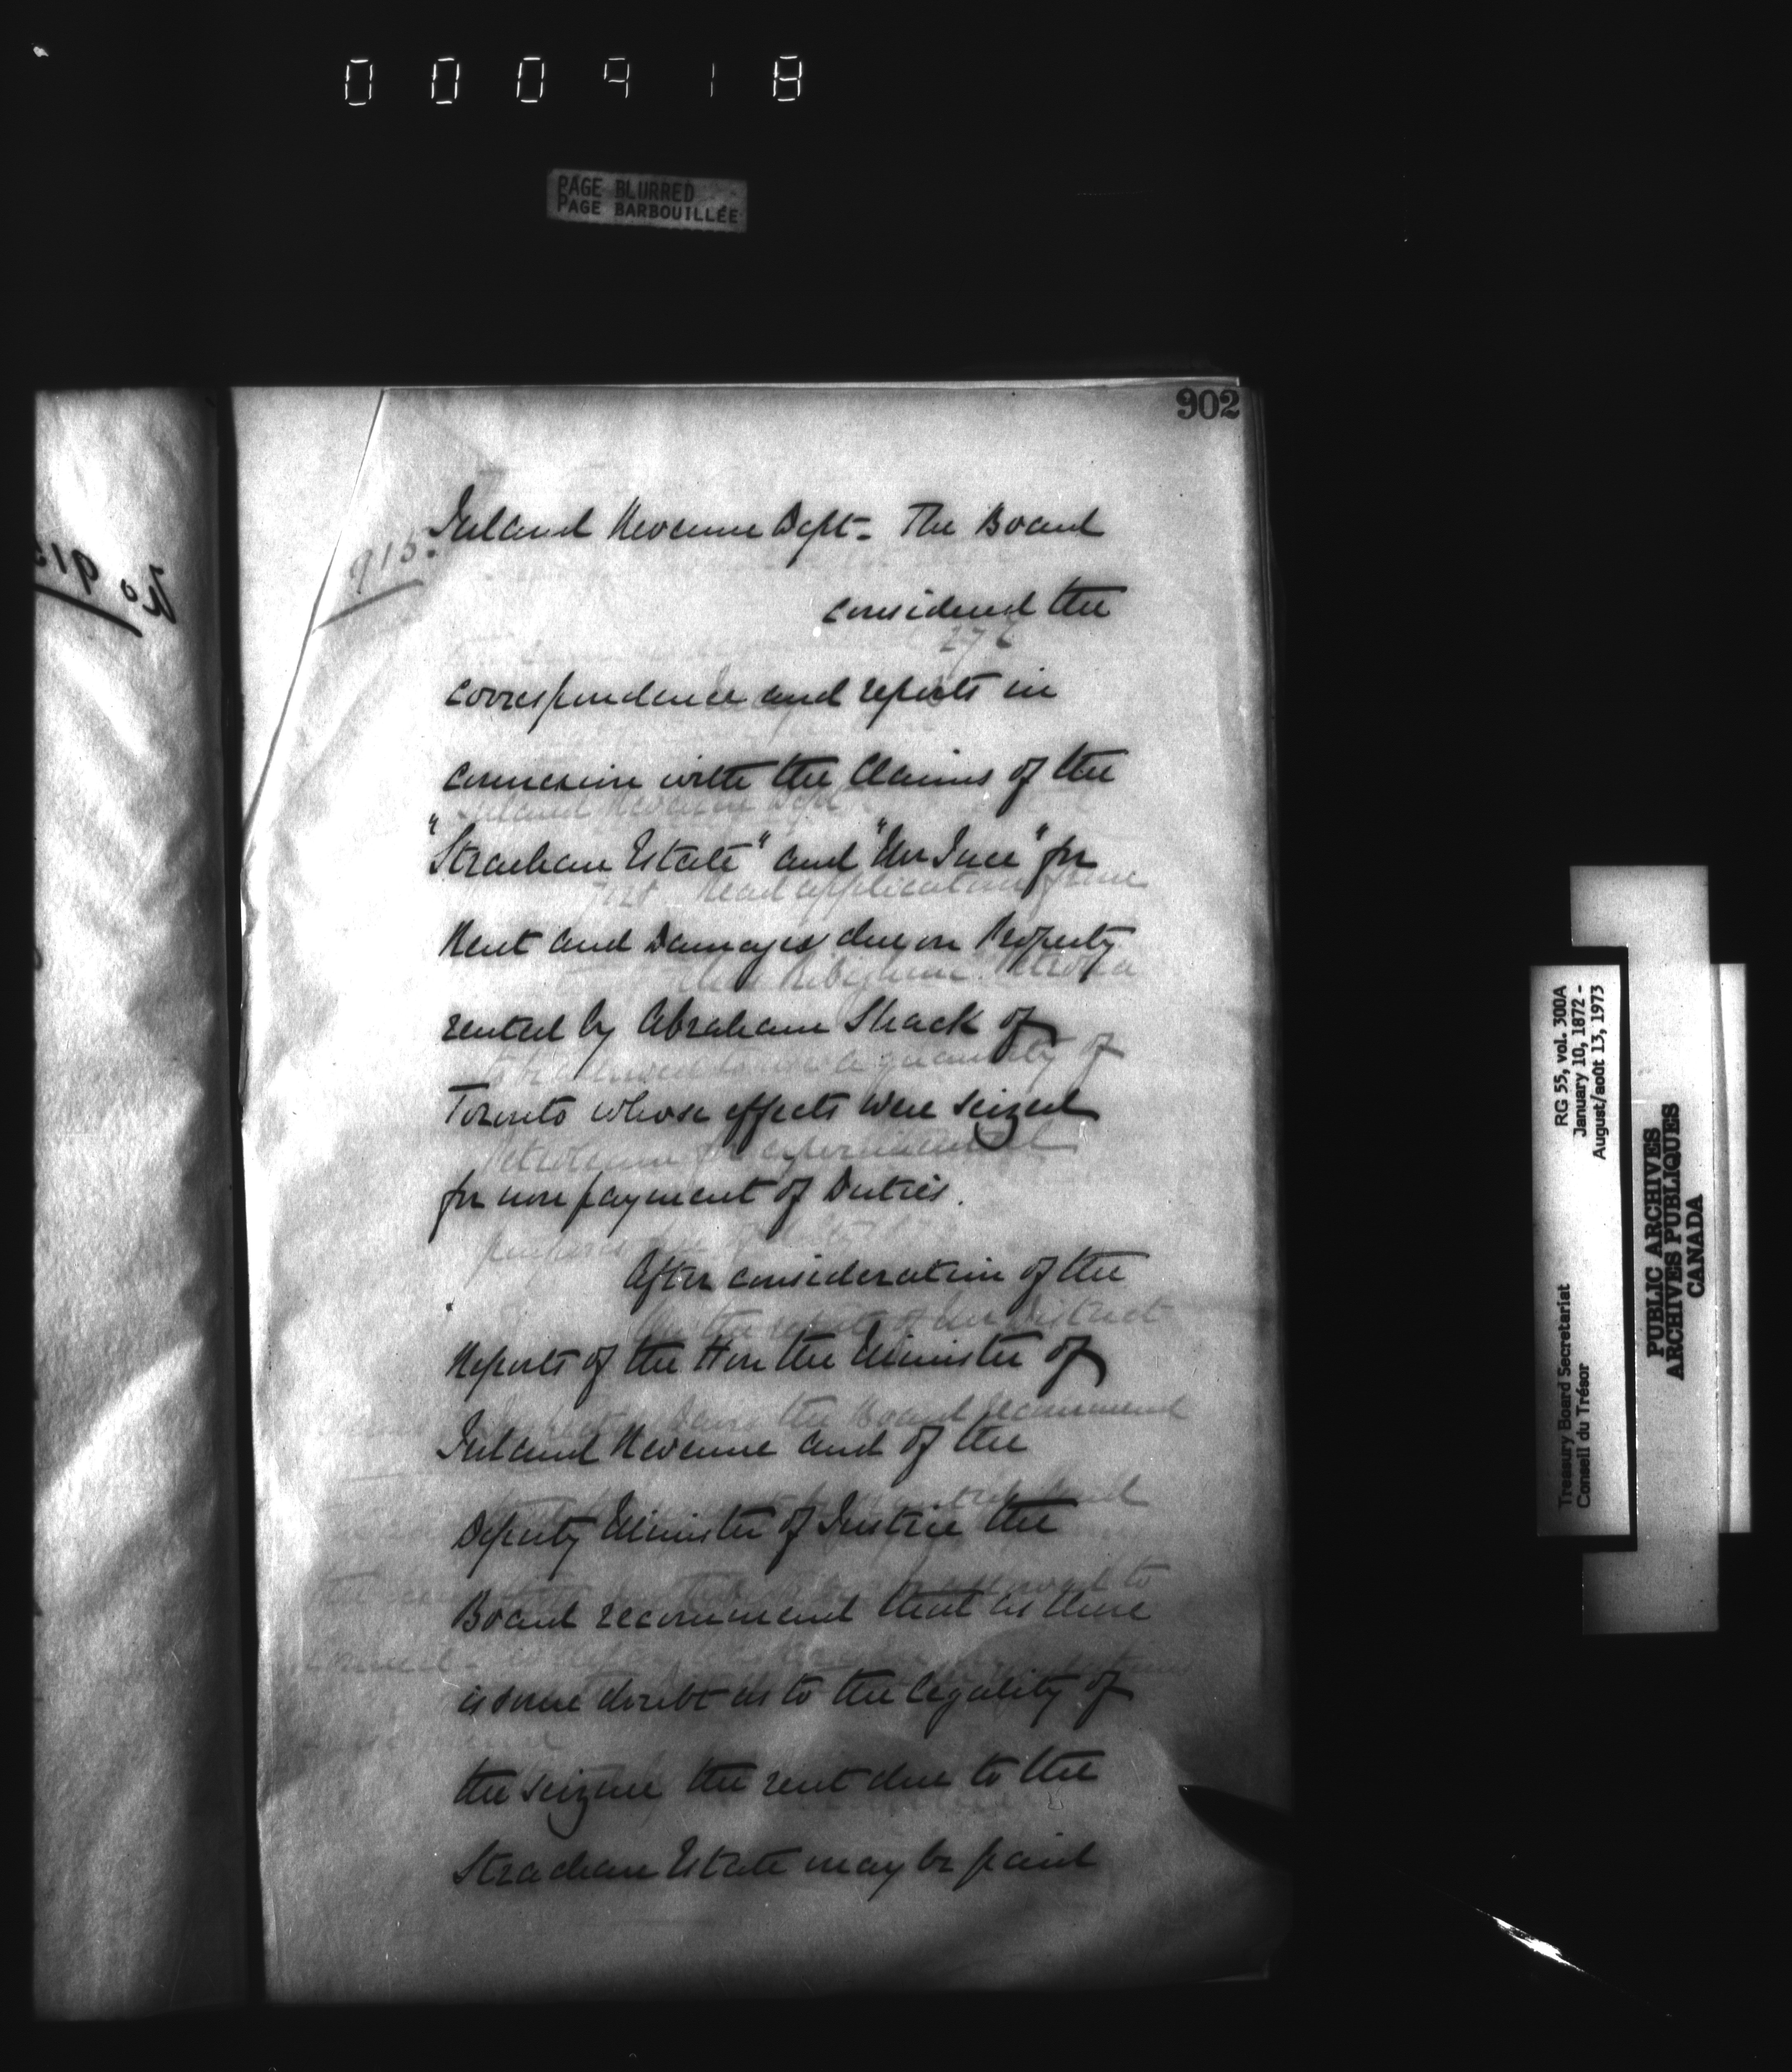 000918
PAGE BLURRED
PAGE BARBOUILLÉE
902
915.
No 915
Inland Revenue Dept - The Board
considered the
correspondence and reports in
connexion with the Claims of the
"Strachan Estate" and "Mr Ince" for
Rent and Damages due on Property
rented by Abraham Shack of
Toronto whose effects were seized
for non payment of Duties.
After consideration of the
Reports of the Hon the Minister of
Inland Revenue and of the
Deputy Minister of Justice the
Board recommend that as there
is some doubt as to the legality of
the seizure the rent due to the
Strachan Estate may be paid
Treasury Board Secretariat
Conseil du Trésor
RG 55, vol. 300A
January 10, 1872 -
August/août 13, 1973
PUBLIC ARCHIVES
ARCHIVES PUBLIQUES
CANADA